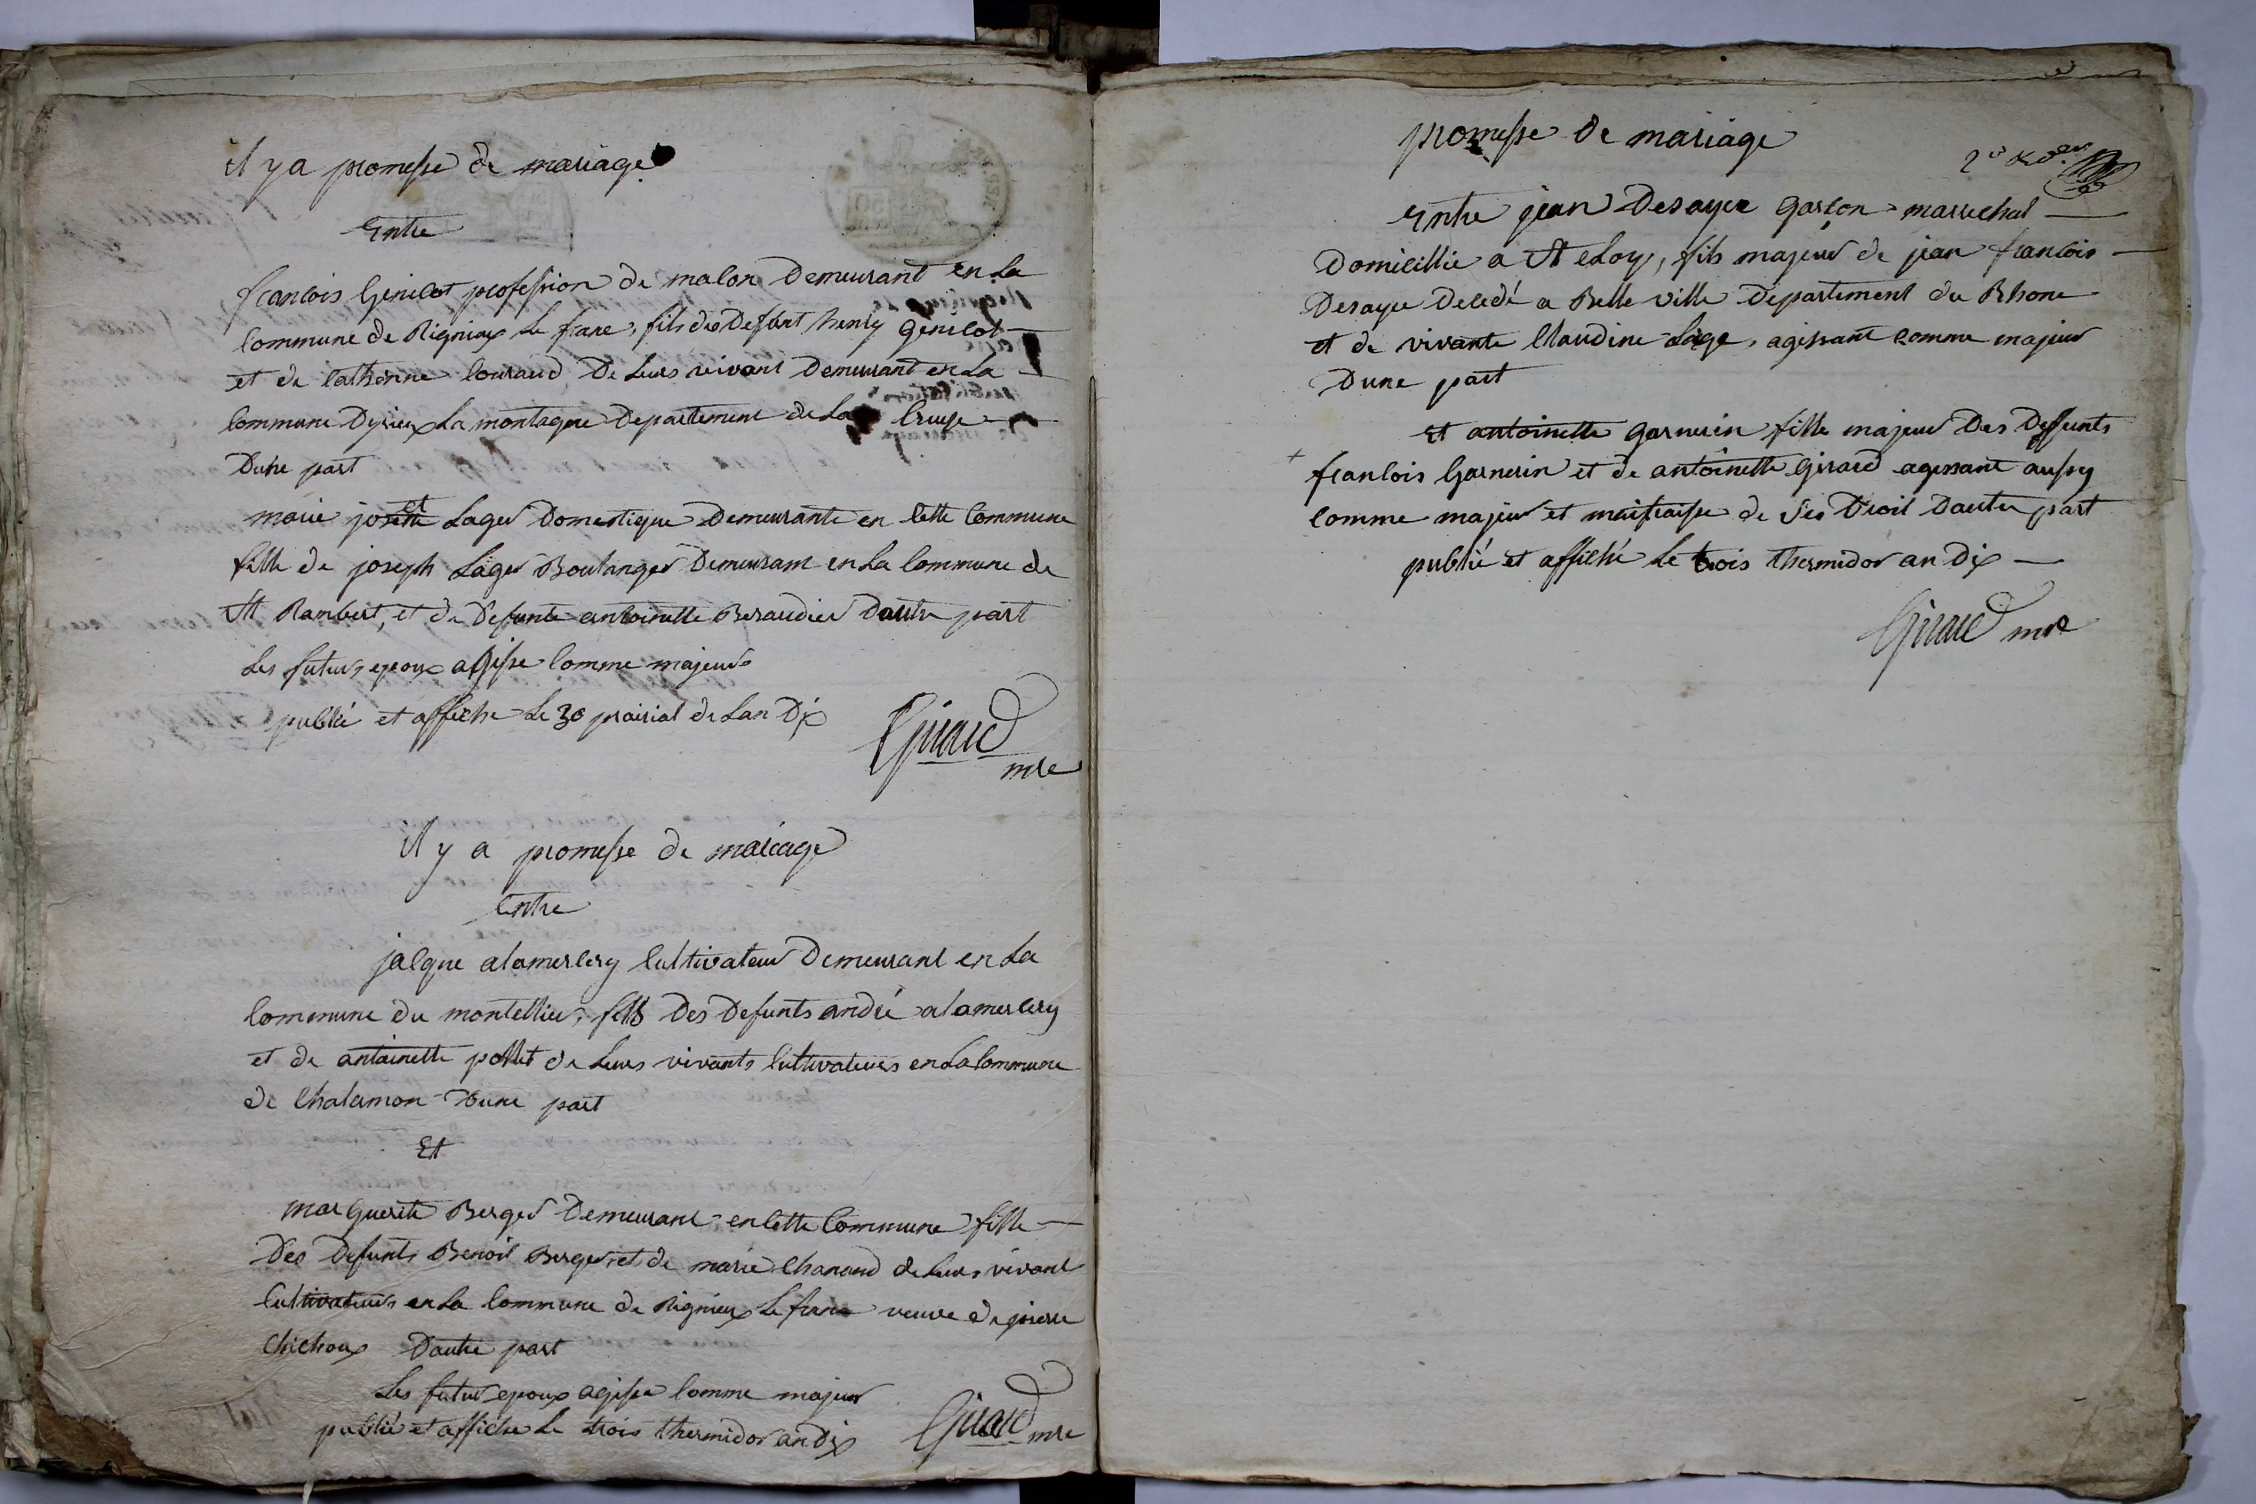 il y a promesse de mariage
Entre
francois Genicot profession de malon Demeurant en La
Commune de Rignieux Le franc, fils des Defunt henry Genicot
et de Catherine Couraud De Leurs vivant Demeurant en La
Commune Dyrieux La montagne Departement de La Creuse
Dune part
et
marie josette Lager Domestique Demeurante en Cette Commune
fille de joseph Lager Boulanger Demeurant en La Commune de
St Rambert, et de Defunte antoinette Beraudier Dautre part
Les futurs epoux agisse Comme majeurs
publié et affiche Le 30 prairial de Lan Dix
Girard
mre
il y a promesse de mariage
Entre
jacque alamercery Cultivateur Demeurant en La
Commune du montellier, fils Des Defunts andré alamercery
et de antoinette pollet de Leurs vivants Cultivateurs en La Commune
de Chalamon Dune part
Et
marguerite Berger Demeurant en Cette Commune fille
Des Defunts Benoit Berger et de marie Chanaud de Leurs vivant
Cultivateurs en La Commune de Rignieux Le franc veuve de pierre
Chichoux Dautre part
Les futur epoux agisse Comme majeur
publié et affiche Le trois thermidor an Dix
Girard mre
promesse de mariage
Entre jean Desaye garcon marrechal
Domicillie a St eLoy, fils majeur de jean francois
Desaye Decedé a Belle ville Departement du Rhone
et de vivante Claudine Lage, agissant comme majeur
Dune part
et antoinette garnerin fille majeur Des Deffunts
francois Garnerin et de antoinette Girard agissant aussy
Comme majeur et maitraisse de Ses Droit Dautre part
publié et affiché Le trois thermidor an Dix
Girard mre